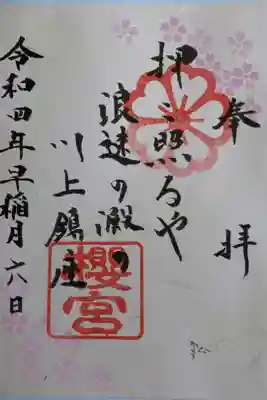 奉拝
押し照るや
浪速の澱の
川上鎮座
櫻宮
令和四年早稲月六日